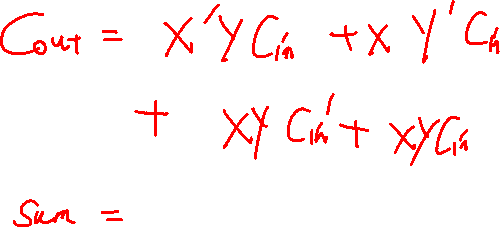 Cout = X'YCin + X Y'Cin
+ XYCin' + XYCin
Sum =